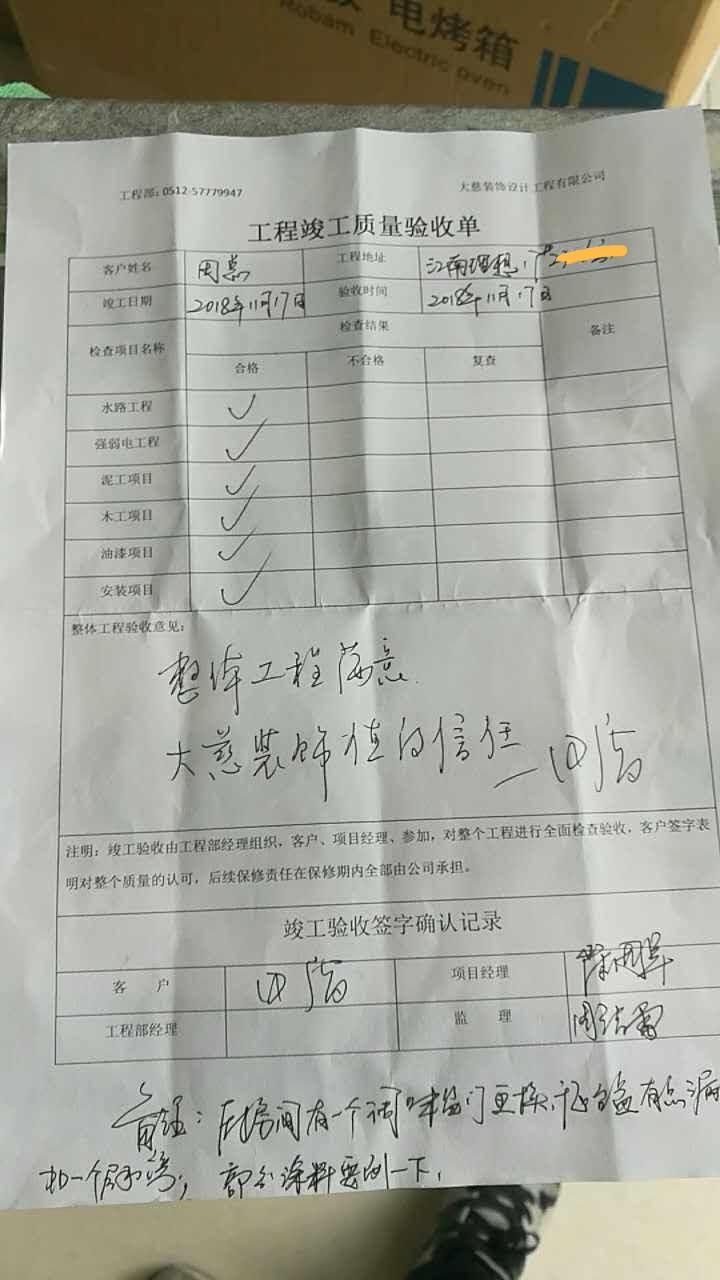 电烤箱
Robam Electric oven
工程部：0512-57779947 大慈装饰设计工程有限公司
工程竣工质量验收单
客户姓名 周总 工程地址 江南理想
竣工日期 2018年11月17日 验收时间 2018年11月17日
检查项目名称 检查结果 备注
合格 不合格 复查
水路工程 ✓
强弱电工程 ✓
泥工项目 ✓
木工项目 ✓
油漆项目 ✓
安装项目 ✓
整体工程验收意见：
整体工程满意
大慈装饰值的信任
注明：竣工验收由工程部经理组织，客户、项目经理、参加，对整个工程进行全面检查验收，客户签字表
明对整个质量的认可，后续保修责任在保修期内全部由公司承担。
竣工验收签字确认记录
客 户 项目经理
工程部经理 监 理
房间有一个 门更换 有点漏
加一个 部分涂料要 一下